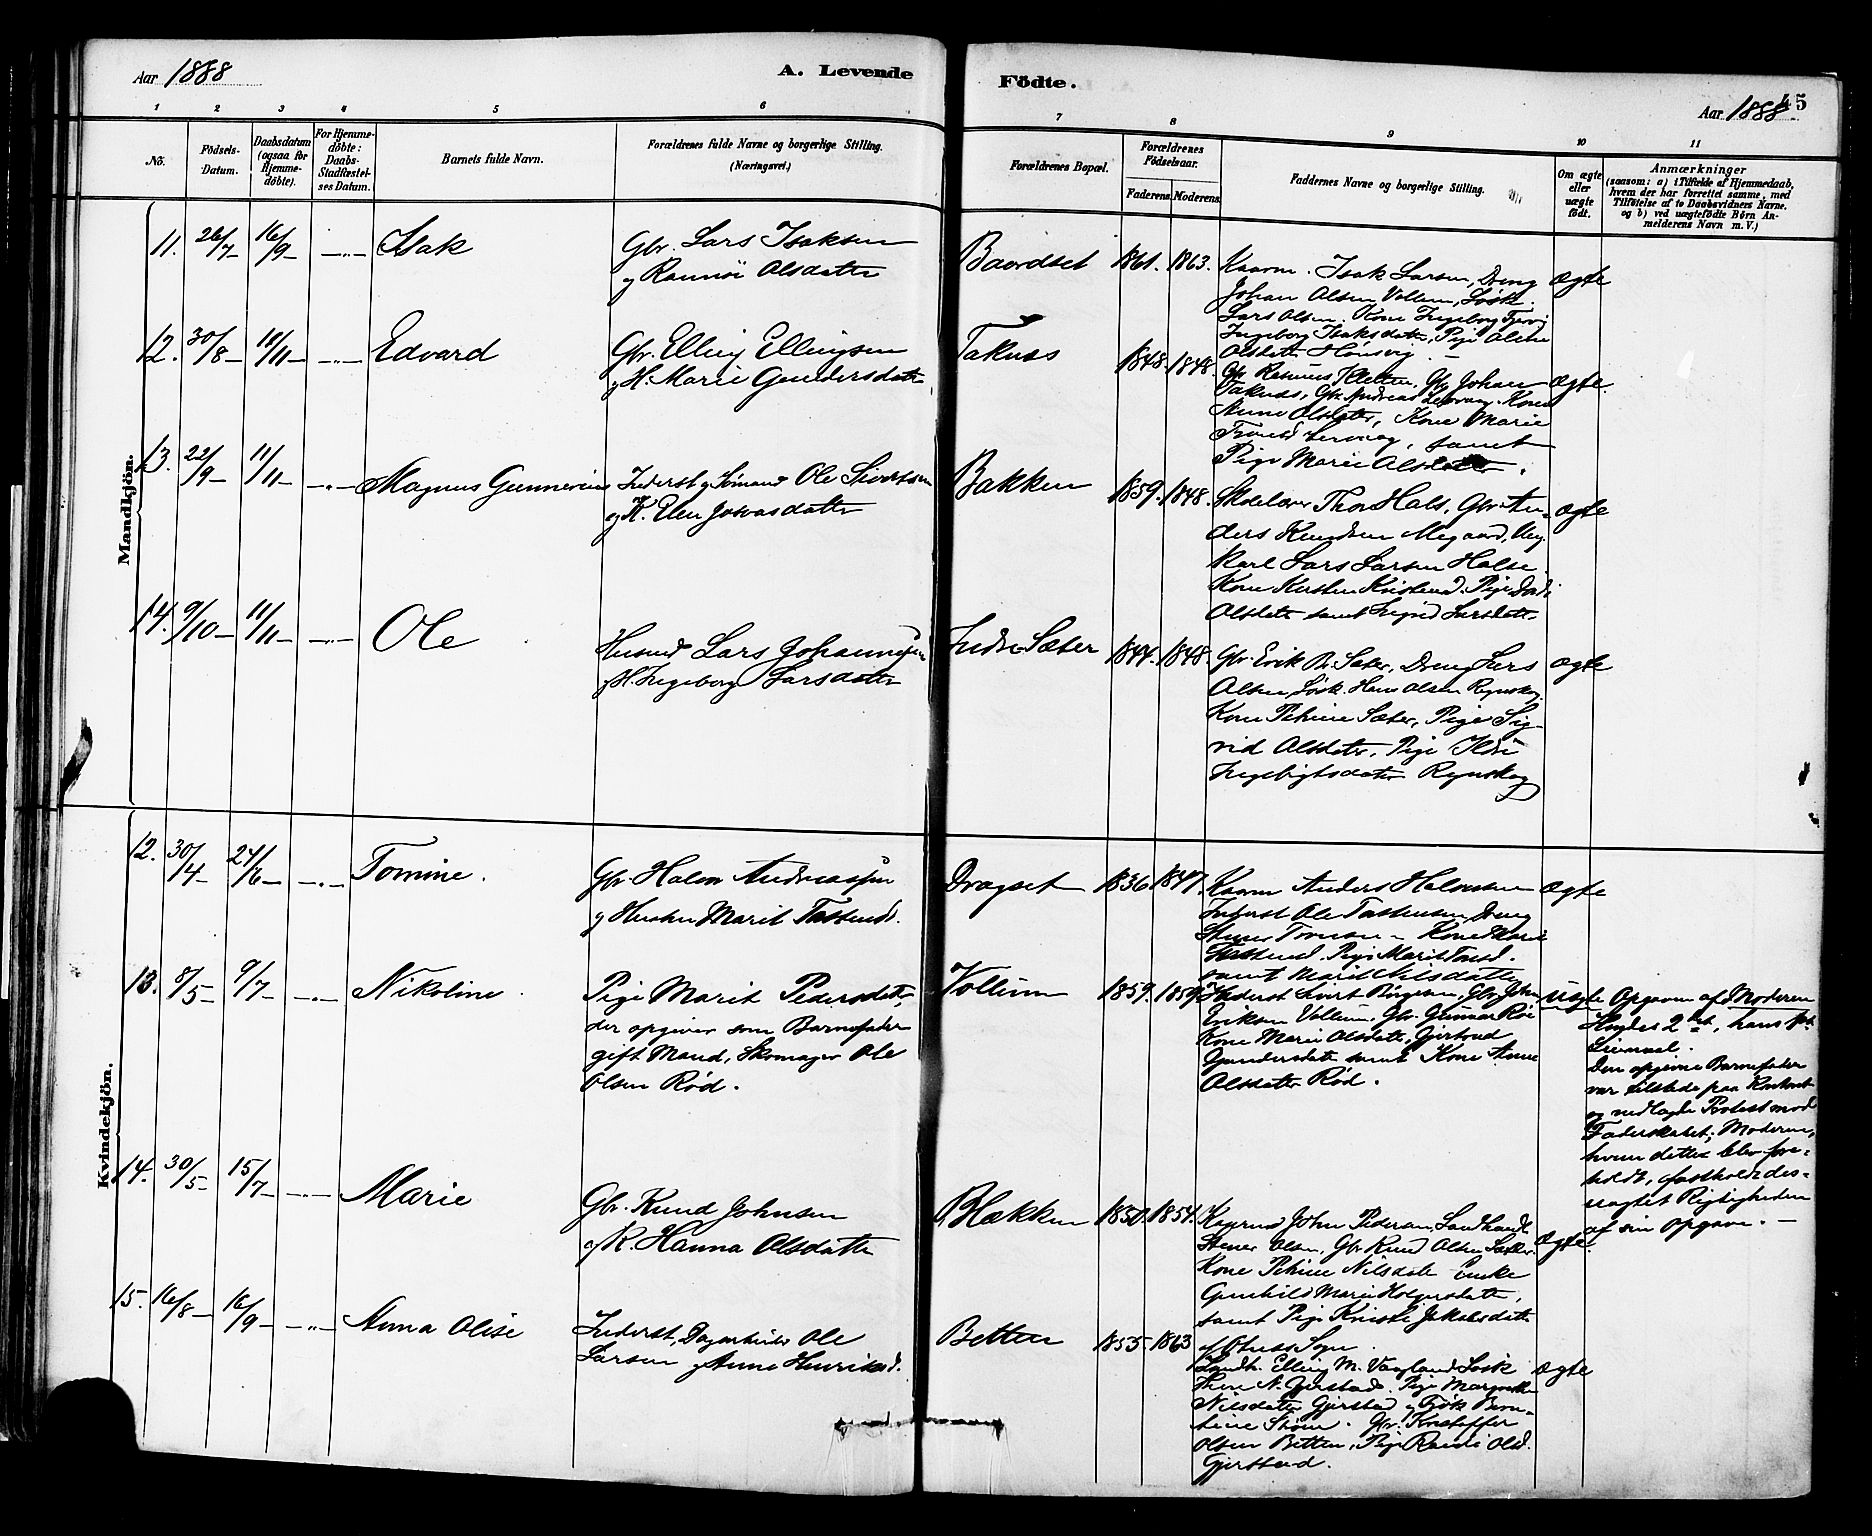 Aar 1888
A. Levende Födte.
Aar 1888
45
1 2 3 4 5 6 7 8 9 10 11
No.
Födsels-Datum.
Daabsdatum (ogsaa för Hjemme-döbte).
For Hjemme-döbte: Daabs-Stadfæstel-ses Datum.
Barnets fulde Navn.
Forældrenes fulde Navne og borgerlige Stilling.
(Næringsvei.)
Forældrenes Bopæl.
Forældrenes Födselsaar.
Faderens. Moderens.
Faddernes Navne og borgerlige Stilling.
Om ægte eller uægte födt.
Anmærkninger
(saasom: a) i Tilfælde af Hjemmedaab,
hvem der har forrettet samme, med
Tilföielse af to Daabsvidners Navne.
og b) ved uægtefödte Börn An-
melderens Navn m. V.)
Mandkjön.
11. 26/7 16/9 Isak
Gbr. Lars Isaksen
og Rannöi Olsdatter
Baardset 1861. 1863.
Kaarm. Isak Larsen, Dreng
Johan Olsen Vollen, Løsk.
Lars Olsen. Kone Ingeborg
Ingeborg Isaksdatter, Pige
Olsdatter
ægte
12. 30/8 10/11 Edvard
Gbr. Elling Ellingsen
og H. Marie Gundersdatter
Taknes 1848. 1848.
Gbr Rasmus Kletten, Gbr Johan
Taknes, Gbr. Andreas Kone
Anne Olsdatter, Kone Marie
samt
Pige Marie Olsdatter.
ægte.
13. 22/9 11/11 Magnus Gunnerius
Inderst og Sömand Ole Sivertsen
og K. Elen Josvasdatter
Bakken 1859. 1848.
Skolelærer Thore Hals, Gbr. An-
ders Knudsen Megaard, Ung
Karl Lars Larsen Halse
Kone Kirsten Pige
Olsdatter samt Ingrid Larsdatter
ægte
14. 9/10 11/11 Ole
Husmd Lars Johannesen
og H. Ingeborg Larsdatter
Indre Sæter 1844. 1848.
Gbr. Erik Sæter, Dreng Lars
Olsen, Løsk. Hans Olsen Rynskog.
Kone Petrine Sæter, Pige Sig-
rid Olsdatter, Pige Ildri
Ingebrigtsdatter Rynskog
ægte
Kvindekjön.
12. 30/4 24/6 Tomine.
Gbr. Halvor Andreassen
og Hustru Marit Tostensd.
Dragset 1836 1847.
Kaarm Anders Halvorsen
Inderst Ole Tostensen, Dreng
Kone Marie
Pige Marit
samt Marit Nilsdatter
ægte
13. 8/5 9/7 Nikoline
Pige Marit Pedersdatter
der opgiver som Barnefader
gift Mand, Skomager Ole
Olsen Rød.
Vollum 1859. 1859
Inderst Sivert Gbr. John
Eriksen Vollum, Gbr. Gunnar
Kone Marie Olsdatter, Gjertrud
Gundersdatter samt Kone Anne
Olsdatter Rød.
uægte
Opgaven af Moderen
Hendes 2det, hans 1st
Leiermaal.
Den opgivne Barnefader
var tilstede paa Kontoret
og nedlagde Protest mod
Faderskabet; Moderen,
hvem dette blev fore-
holdt, fastholdt des-
uagtet Rigtigheden
af sin Opgave. —
14. 30/5 15/7 Marie
Gbr. Knud Johnsen
og K. Hanna Olsdatter
Blækken 1850. 1854.
John Pedersen, Landhandl
Stener Olsen, Gbr Knud Olsen Sæter.
Kone Petrine Nilsdatter Enke
Gunhild Marie Holgersdatter,
samt Pige Jakobsdatter
ægte
15. 16/8 16/9 Anna Olise
Inderst, Dagarbeider Ole
Larsen og Anne Henriksd.
Betten 1855. 1863
Landh. Elling M. Vaagland
N. Gjerstad. Pige
Nilsdatter Gjerstad
Gbr. Kristoffer
Olsen Betten, Pige Randi Olsd.
Gjerstad.
ægte